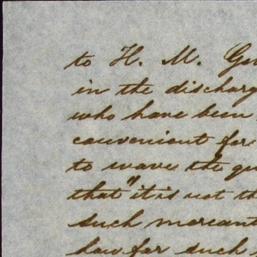 to H. M. Go
in the discharg
who have been
convenient for
to wave the qu
that "it is not th
such mercant
how far such